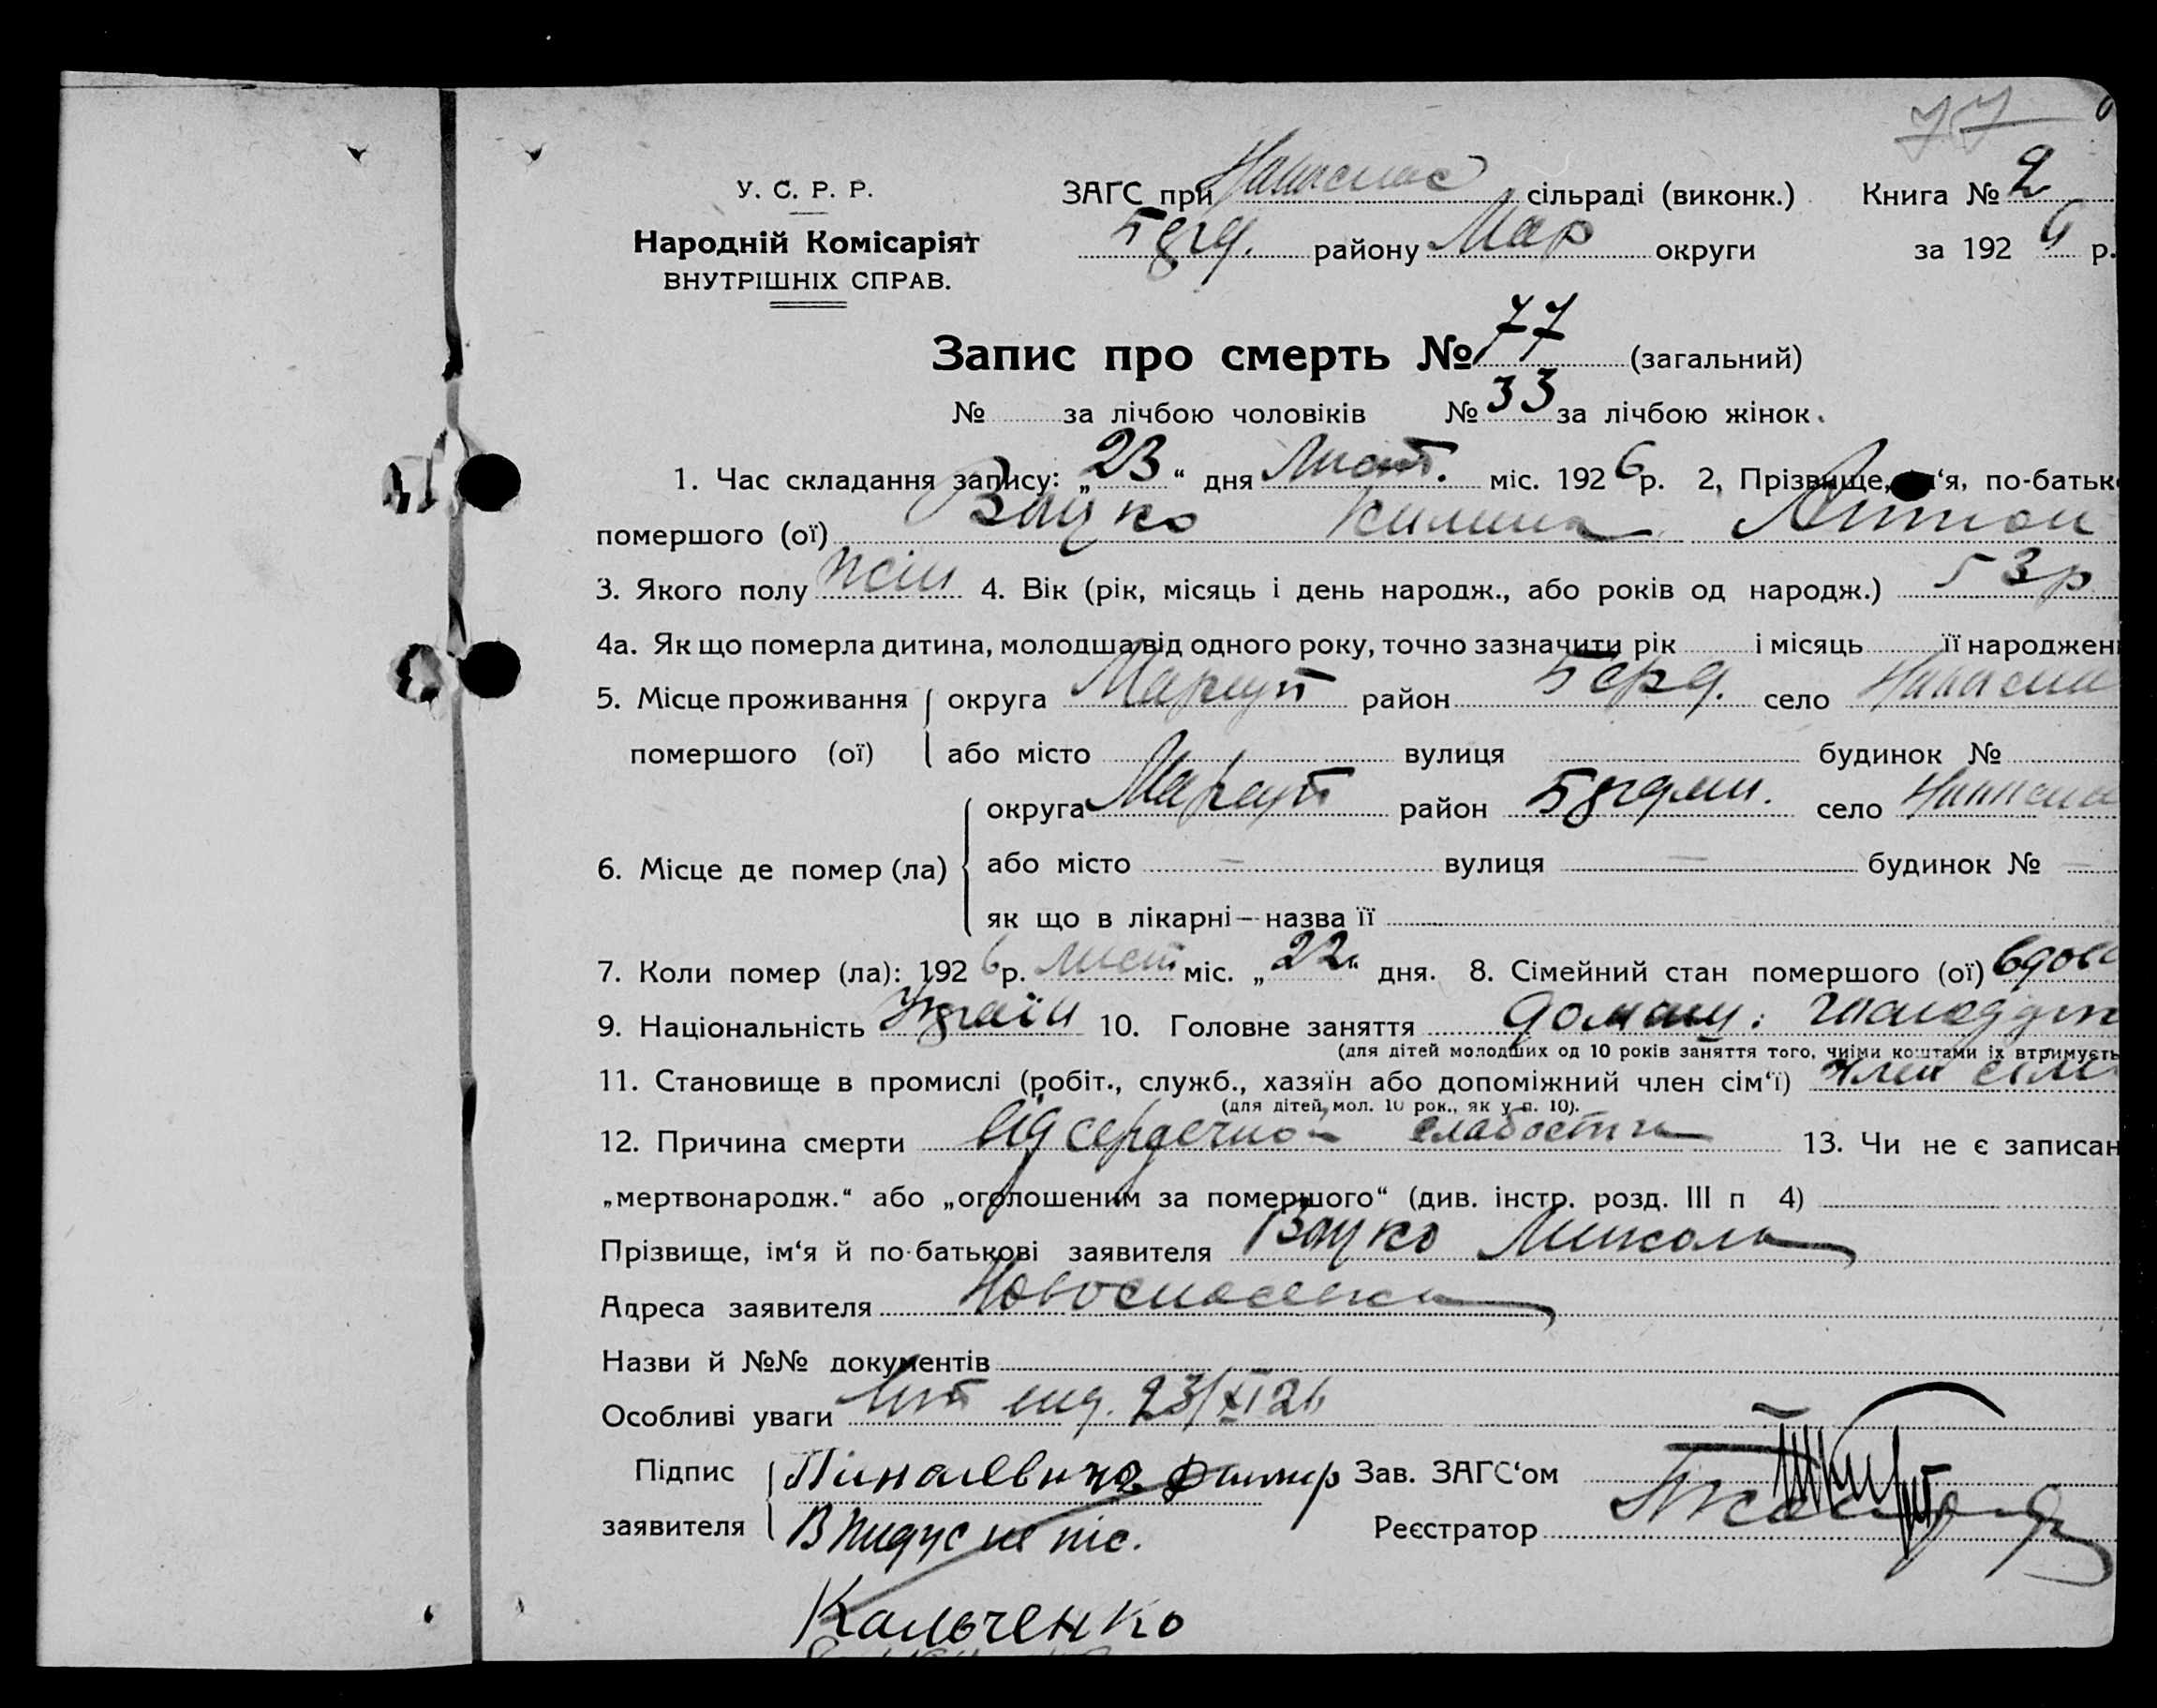 77
У. С. Р. Р.
Народній Комісаріят
ВНУТРІШНІХ СПРАВ.
ЗАГС при сільраді (виконк.) Книга № 2
району Мар округи за 1926 р.
Запис про смерть № 77 (загальний)
№ за лічбою чоловіків № 33 за лічбою жінок.
1. Час складання запису: „23“ дня Лист. міс. 1926 р. 2, Прізвище, 'я, по-батьк
помершого (ої) Килина Антон
3. Якого полу жін 4. Вік (рік, місяць і день народж., або років од народж.) 53 р
4а. Як що померла дитина, молодша від одного року, точно зазначити рік і місяць її народжен
5. Місце проживання округа Маріуп район Берд. село
помершого (ої) або місто вулиця будинок №
округа Маріуп район село
6. Місце де помер (ла) або місто — вулиця — будинок № —
як що в лікарні — назва її
7. Коли помер (ла): 1926 р. лист міс. „22“ дня. 8. Сімейний стан помершого (ої) вдова
9. Національність Україн 10. Головне заняття домаш:
(для дітей молодших од 10 років заняття того, чиїми коштами їх втримуєть
11. Становище в промислі (робіт., служб., хазяїн або допоміжний член сім'ї) член сім
(для дітей, мол. 10 рок., як у п. 10).
12. Причина смерти від сердечной слабости 13. Чи не є записан
„мертвонародж.“ або „оголошеним за помершого“ (див. інстр. розд. III п 4)
Прізвище, ім'я й по-батькові заявителя Микола
Адреса заявителя Новоспасевка
Назви й №№ документів
Особливі уваги 23/XI 26
Підпис Зав. ЗАГС'ом
заявителя Реєстратор
Кальченко